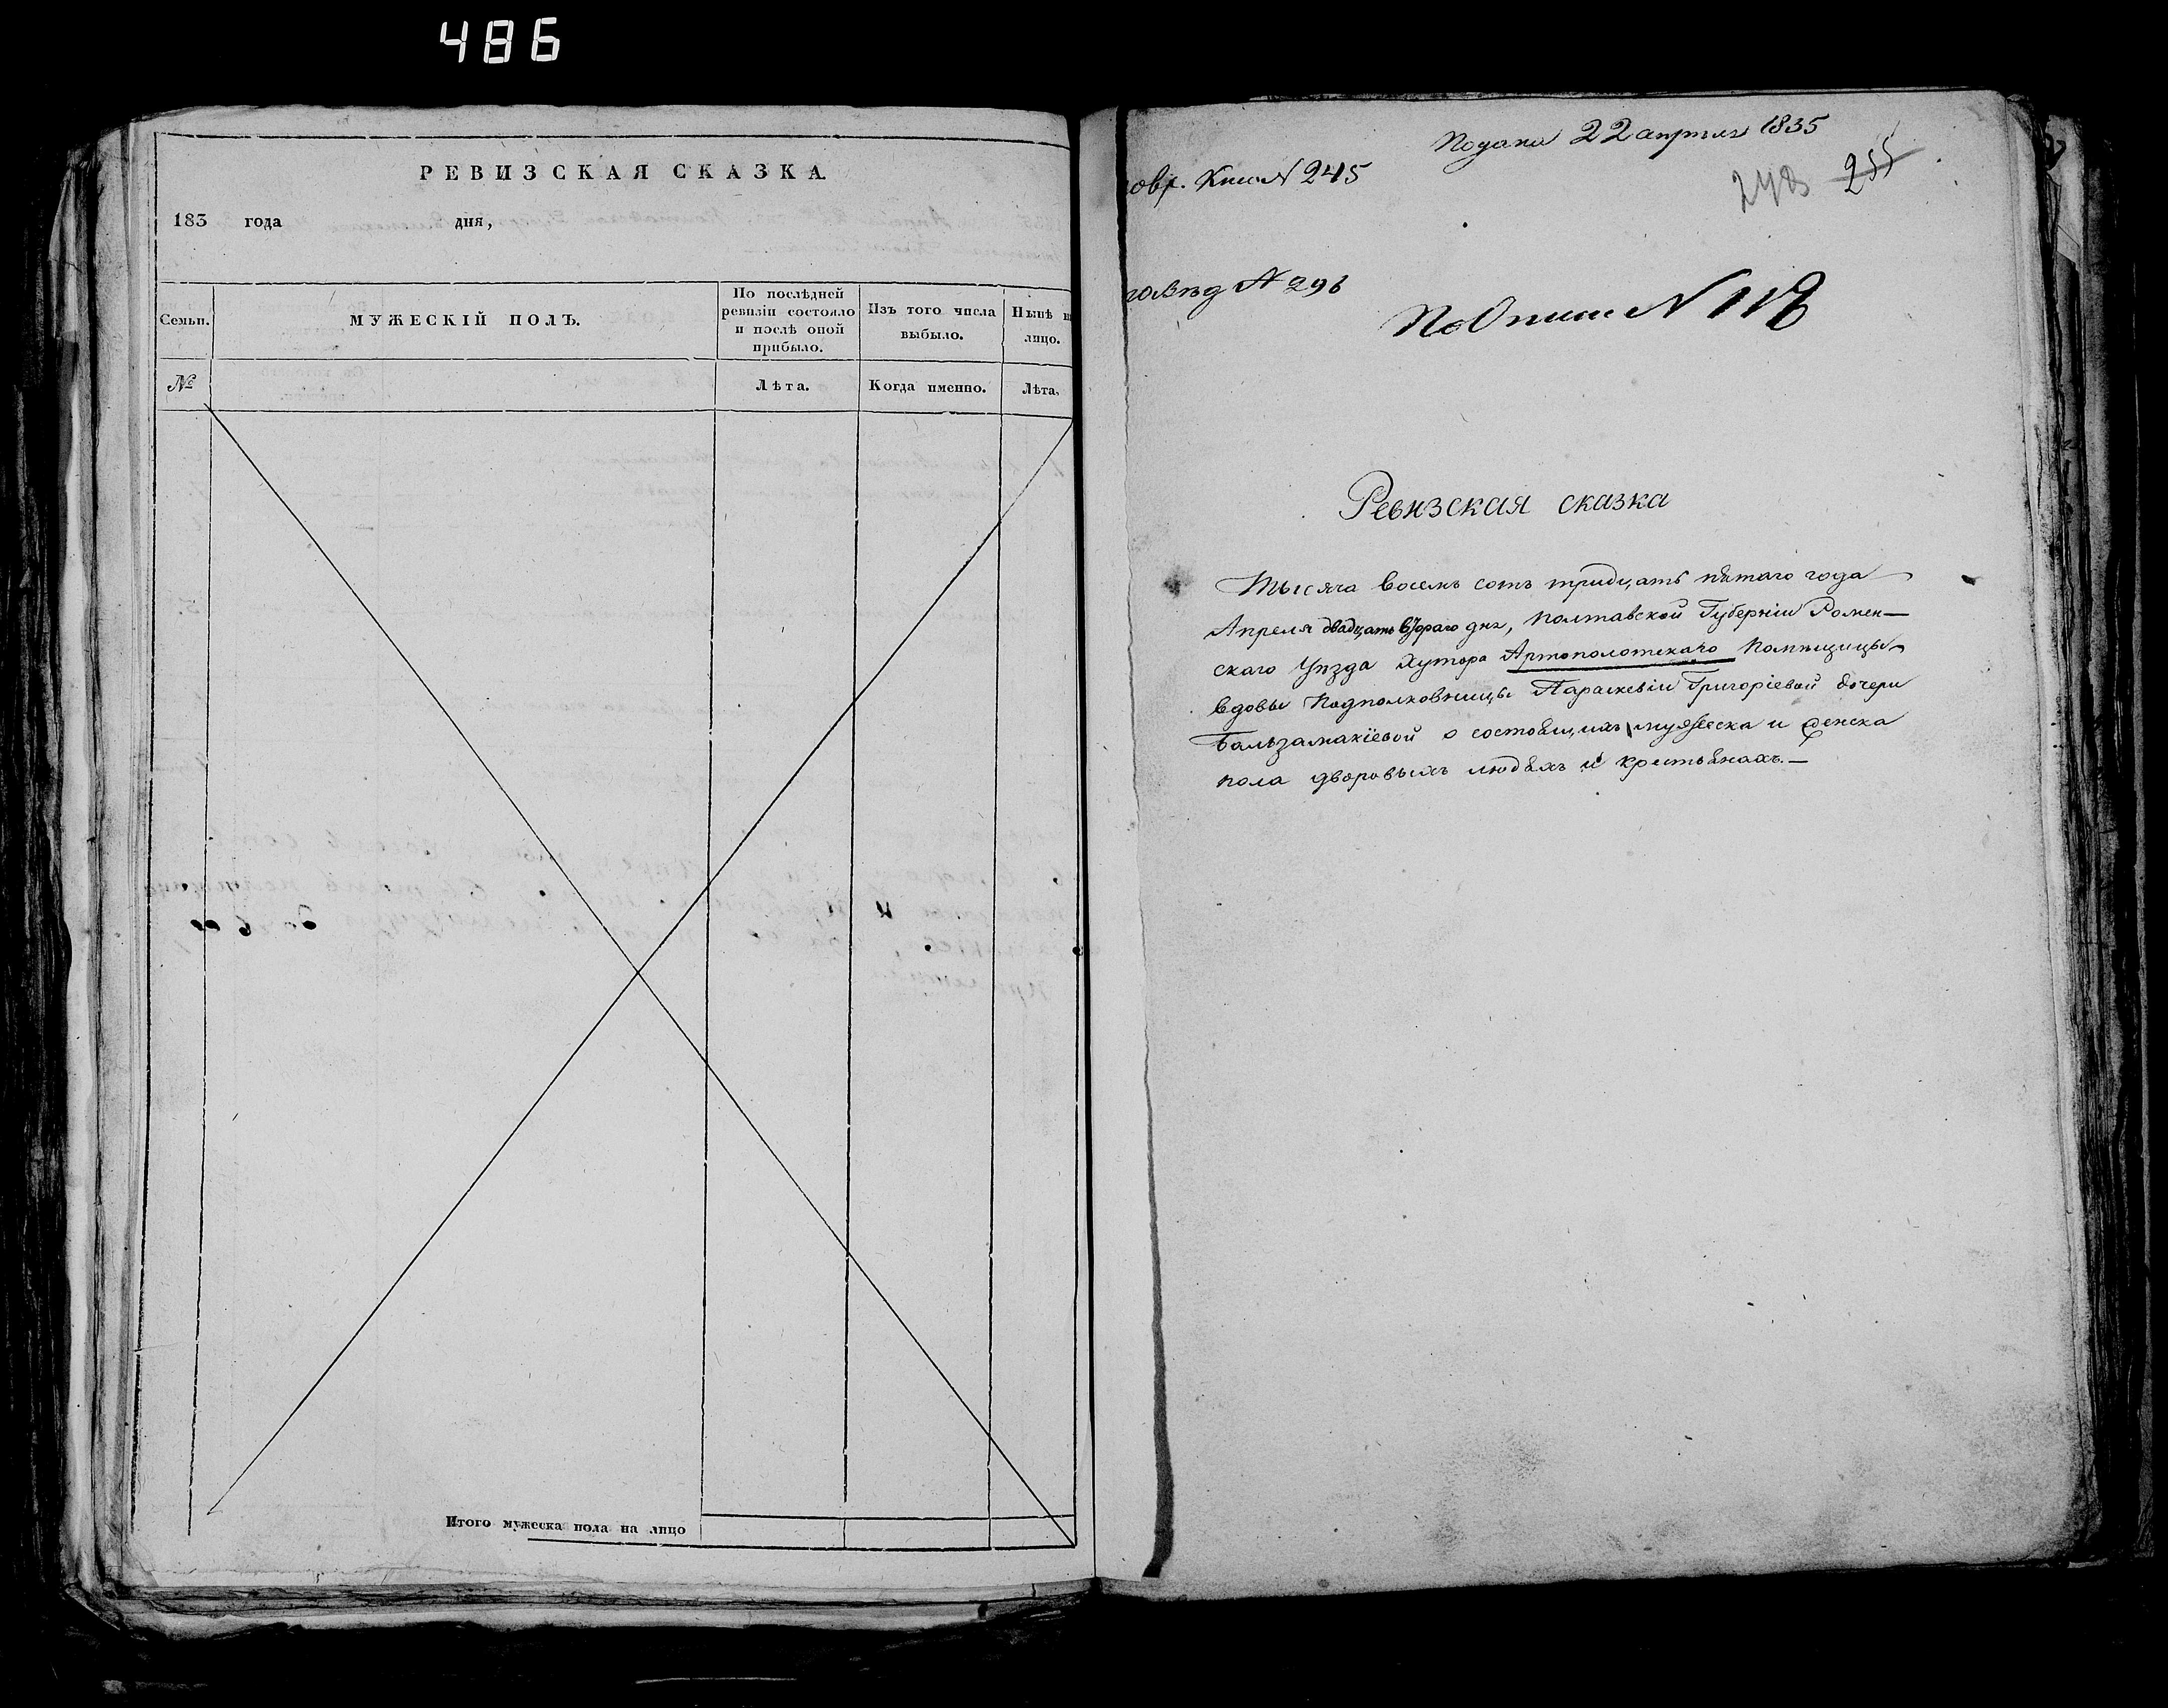 486
РЕВИЗСКАЯ СКАЗКА
183 года дня,
Семьи.
МУЖЕСКІЙ ПОЛЪ.
По послѣдней
ревизіи состояло
и послѣ оной
прибыло.
Изъ того числа
выбыло.
Нынѣ н
лицо.
№
Лѣта.
Когда именно.
Лѣта.
Итого мужеска пола на лицо
Подана 22 апрѣля 1835
N 245
243 255
N 296
По описи N 118
Ревизская сказка
Тысяча восемь сотъ тридцать пѣтаго года
Апреля двадцать втораго дня, Полтавской Губерніи Ромен—
скаго Уѣзда Хутора Артополотскаго Помѣщицы
вдовы Подполковницы Параскевіи Григоріевой дочери
Бальзамакіевой о состоѣщихъ мужеска и женска
пола дворовыхъ людѣхъ и крстьѣнахъ.—